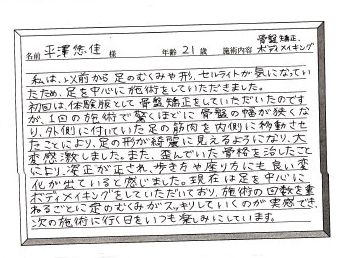 名前 平澤悠佳 様 年齢 21 歳 施術内容 骨盤矯正、ボディメイキング
私は、以前から足のむくみや形、セルライトが気になってい
たため、足を中心に施術をしていただきました。
初回は、体験服として骨盤矯正をしていただいたのです
が、1回の施術で驚くほどに骨盤の幅が狭くな
り、外側に付いていた足の筋肉を内側に移動させ
たことにより、足の形が綺麗に見えるようになり、大
変感激しました。また、歪んでいた骨格を治したこと
により、姿正が正され、歩き方や座り方にも良い変
化が出ていると感じました。現在は足を中心に
ボディメイキングをしていただいており、施術の回数を重
ねるごとに足のむくみがスッキリしていくのが実感でき、
次の施術に行く日をいつも楽しみにしています。